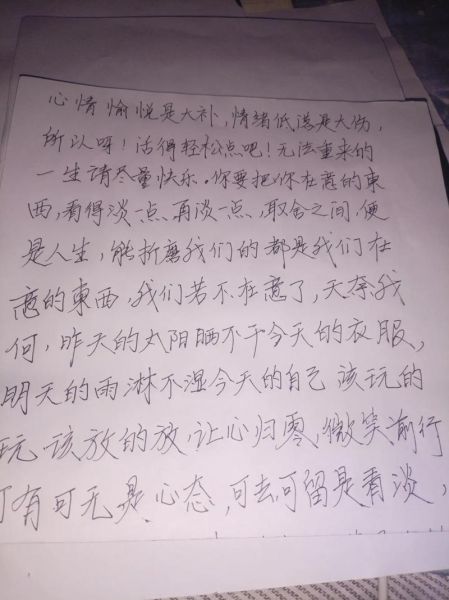 心情愉悦是大补，情绪低落是大伤，
所以呀！活得轻松点吧！无法重来的
一生请尽量快乐。你要把你在意的東
西，看得淡一点，再淡一点，取舍之间，便
是人生，能折磨我们的都是我们在
意的東西，我们若不在意了，天奈我
何，昨天的太阳晒不干今天的衣服，
明天的雨淋不湿今天的自己 该玩的
玩 该放的放，让心归零，微笑前行
可有可无是心态，可去可留是看谈，